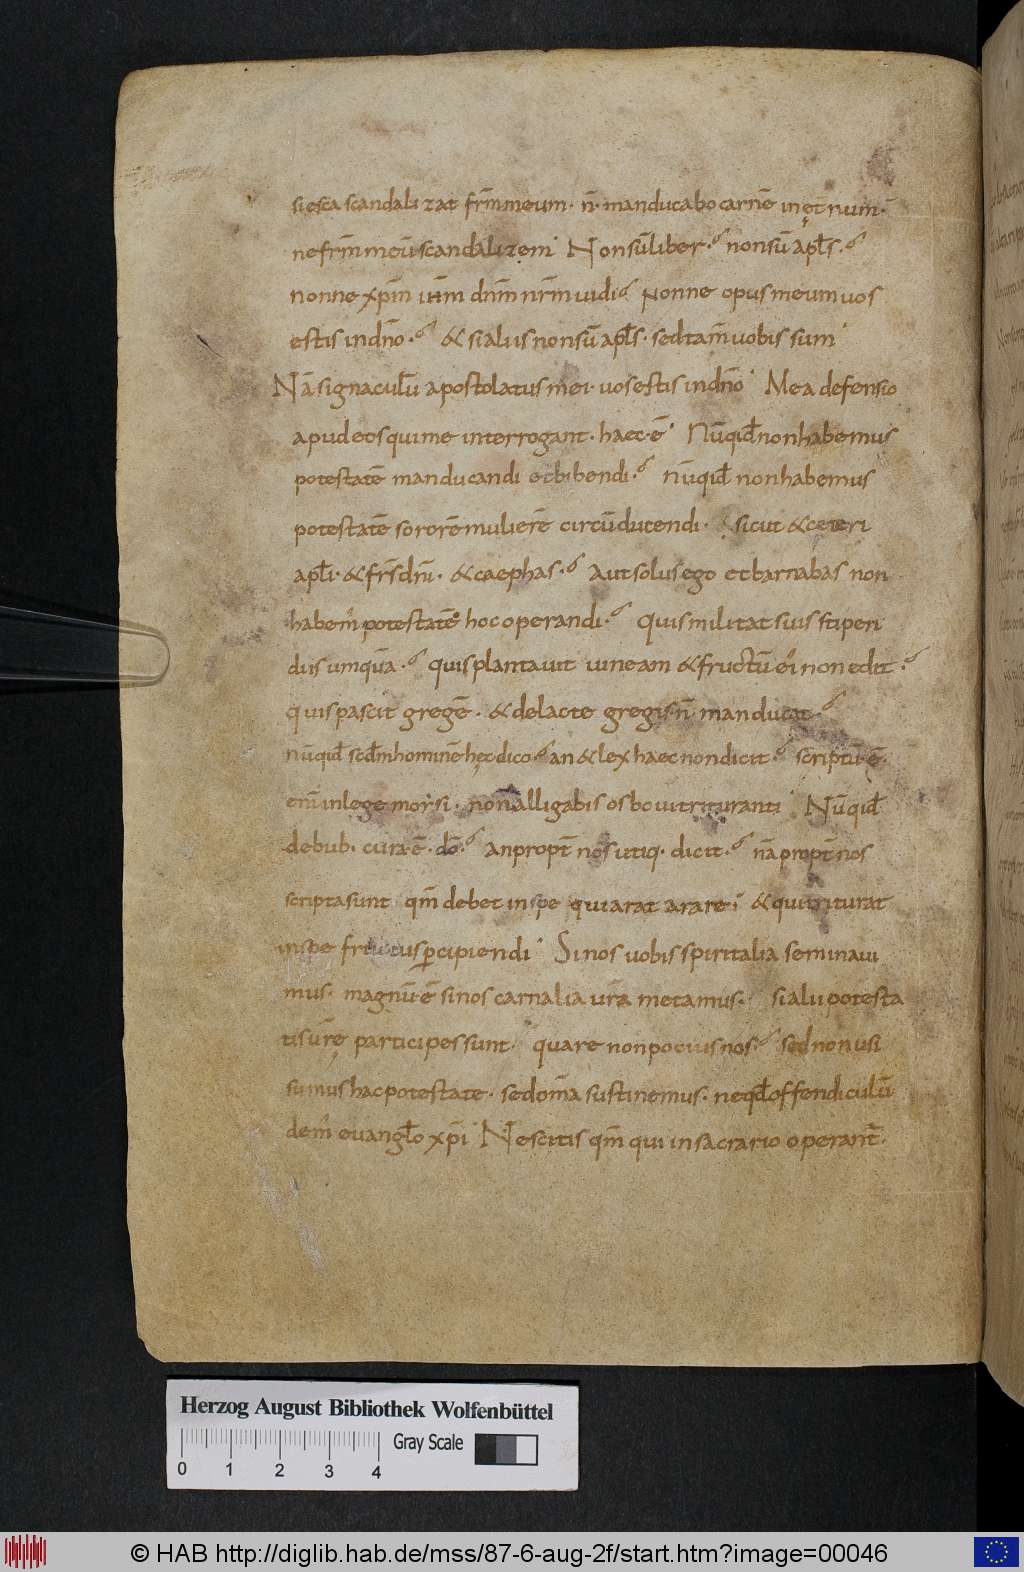 si esca scandalizat frm̄ meum · n̄ · manducabo carnē in ęt̄num ·
ne frm̄ meū scandalizem Non sū liber · non sū apłs ·
nonne xp̄m ih̄m dn̄m nr̄m uidi Nonne opus meum uos
estis in dn̄o · & si aliis non sū apłs · sed tam̄ uobis sum
Nā signaculū apostolatus mei · uos estis in dn̄o Mea defensio
apud eos qui me interrogant · haec · ē Nūqid̄ non habemus
potestatē manducandi et bibendi · nūqid̄ non habemus
potestatē sororē mulierē circūducendi · sicut & ceteri
apłi · & fr̄s dn̄i · & caephas · Aut solus ego et barnabas non
habem̄ potestatē hoc operandi · Quis militat suis stipen
diis umquā · quis plantauit uineam & fructū ei non edit ·
quis pascit gregē · & de lacte gregis n̄ manducat
nūqid̄ scdm̄ hominē hęc dico · an & lex haec non dicit · scriptū · ē ·
enī in lege morsi · non alligabis os boui trituranti Nūqid̄
de bub · cura · ē · dō · an propt̄ nos utiq · dicit · nā propt̄ nos
scripta sunt qm̄ debet in spe qui arat arare & qui triturat
in spe fructus p̄cipiendi Si nos uobis spiritalia seminaui
mus · magnū · ē si nos carnalia ur̄a metamus · si alii potesta
tis ur̄ę participes sunt · quare non pocius nos · sed non usi
sumus hac potestate · sed om̄a sustinemus · ne qd̄ offendiculū
dem̄ euangło xp̄i Nescitis qm̄ qui in sacrario operant̄ ·
Herzog August Bibliothek Wolfenbüttel
Gray Scale
0 1 2 3 4
© HAB http://diglib.hab.de/mss/87-6-aug-2f/start.htm?image=00046